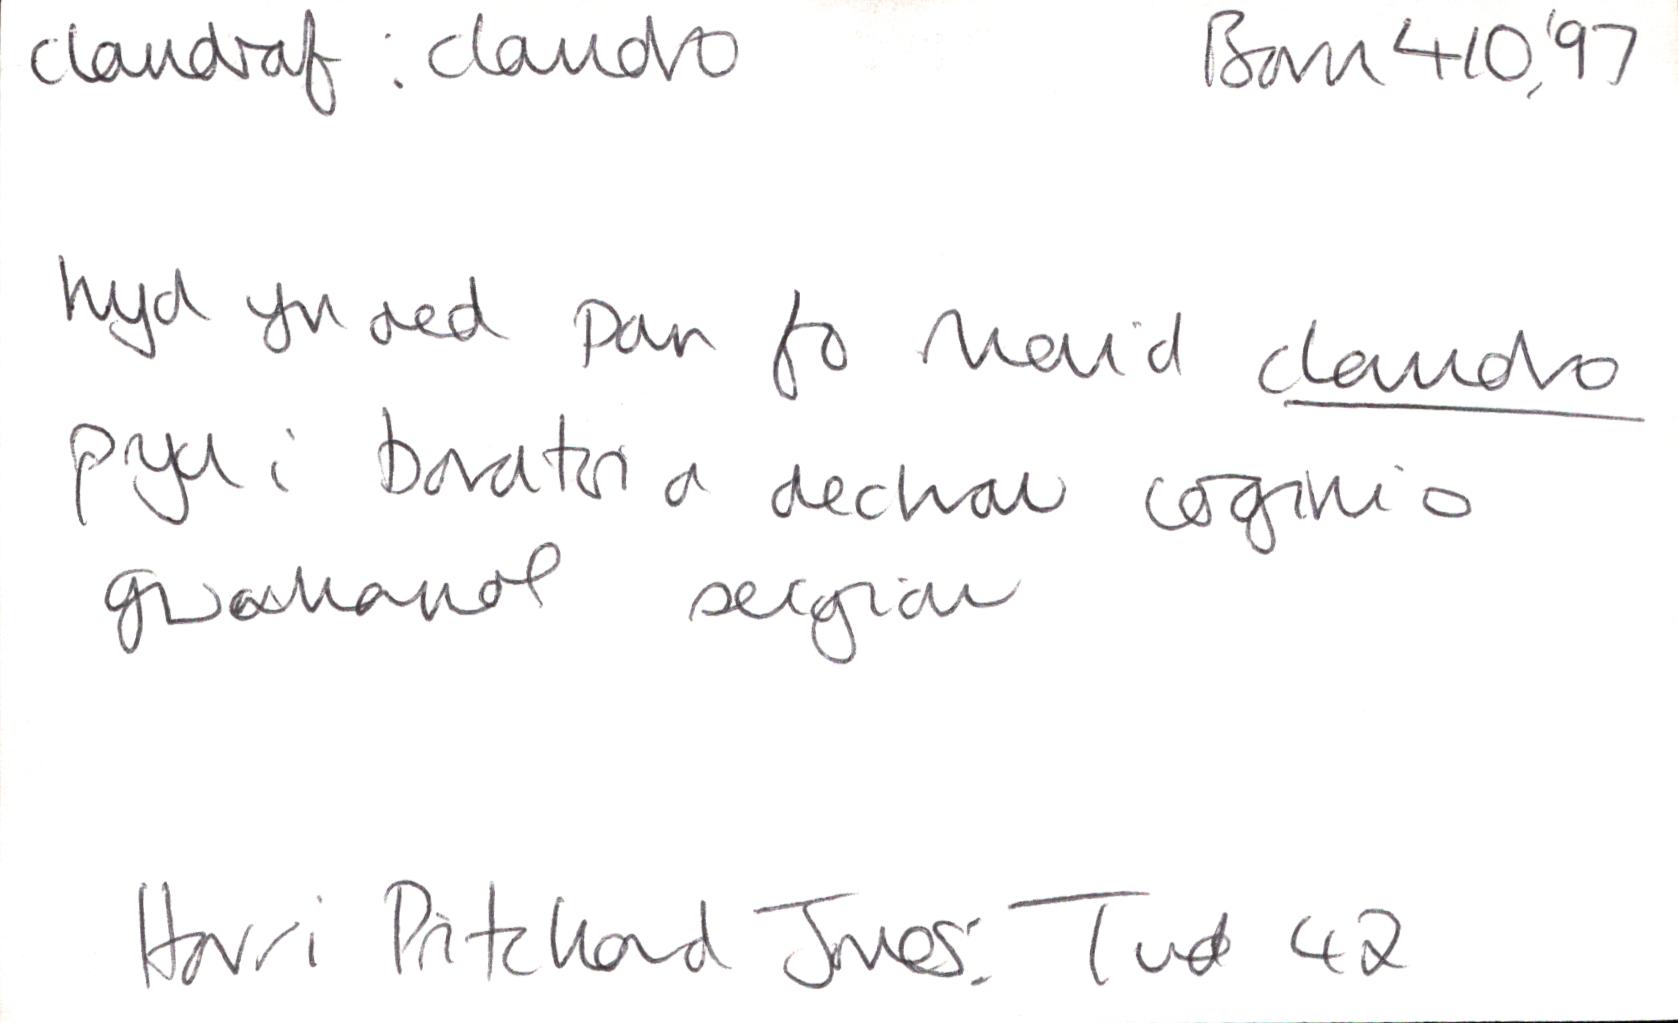 clandraf : clandro
Barn 410, '97
hyd yn oed pan fo rhaid clandro
pryd i baratoi a dechrau coginio
gwahanol seigiau
Harri Pritchard Jones: Tud 42